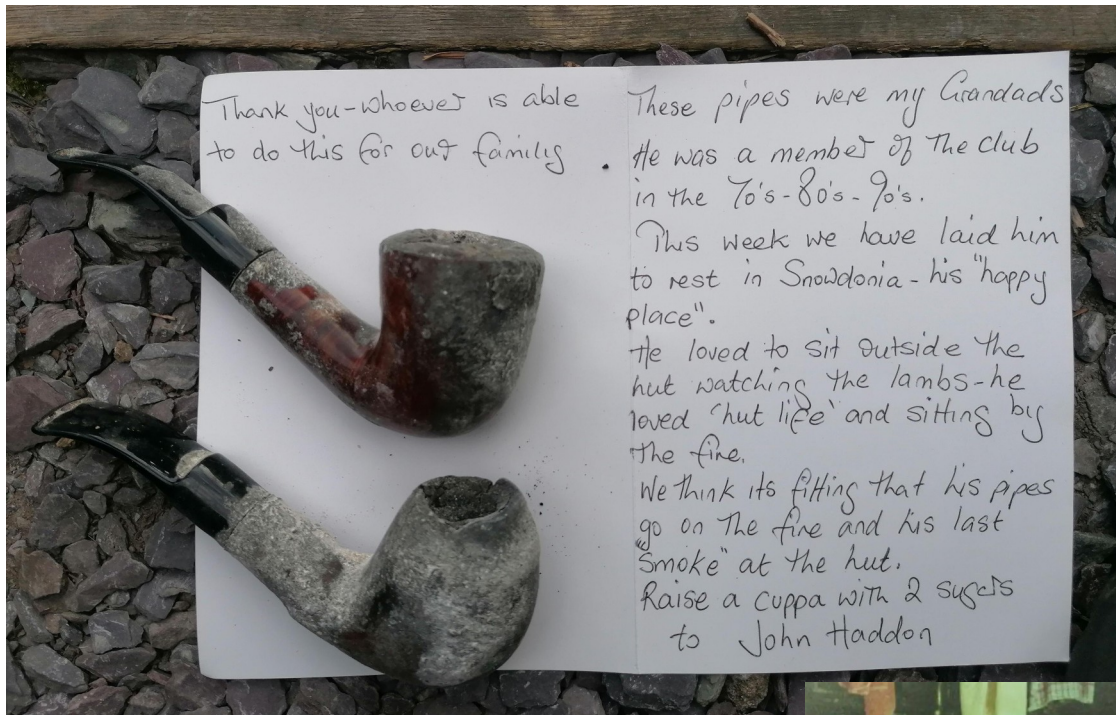 Thank you - whoever is able
to do this for our family
These pipes were my Grandads
He was a member of the club
in the 70's - 80's - 90's.
This week we have laid him
to rest in Snowdonia - his "happy
place".
He loved to sit outside the
hut watching the lambs - he
loved 'hut life' and sitting by
the fire.
We think its fitting that his pipes
go on the fire and his last
"smoke" at the hut.
Raise a cuppa with 2 sugars
to John Haddon